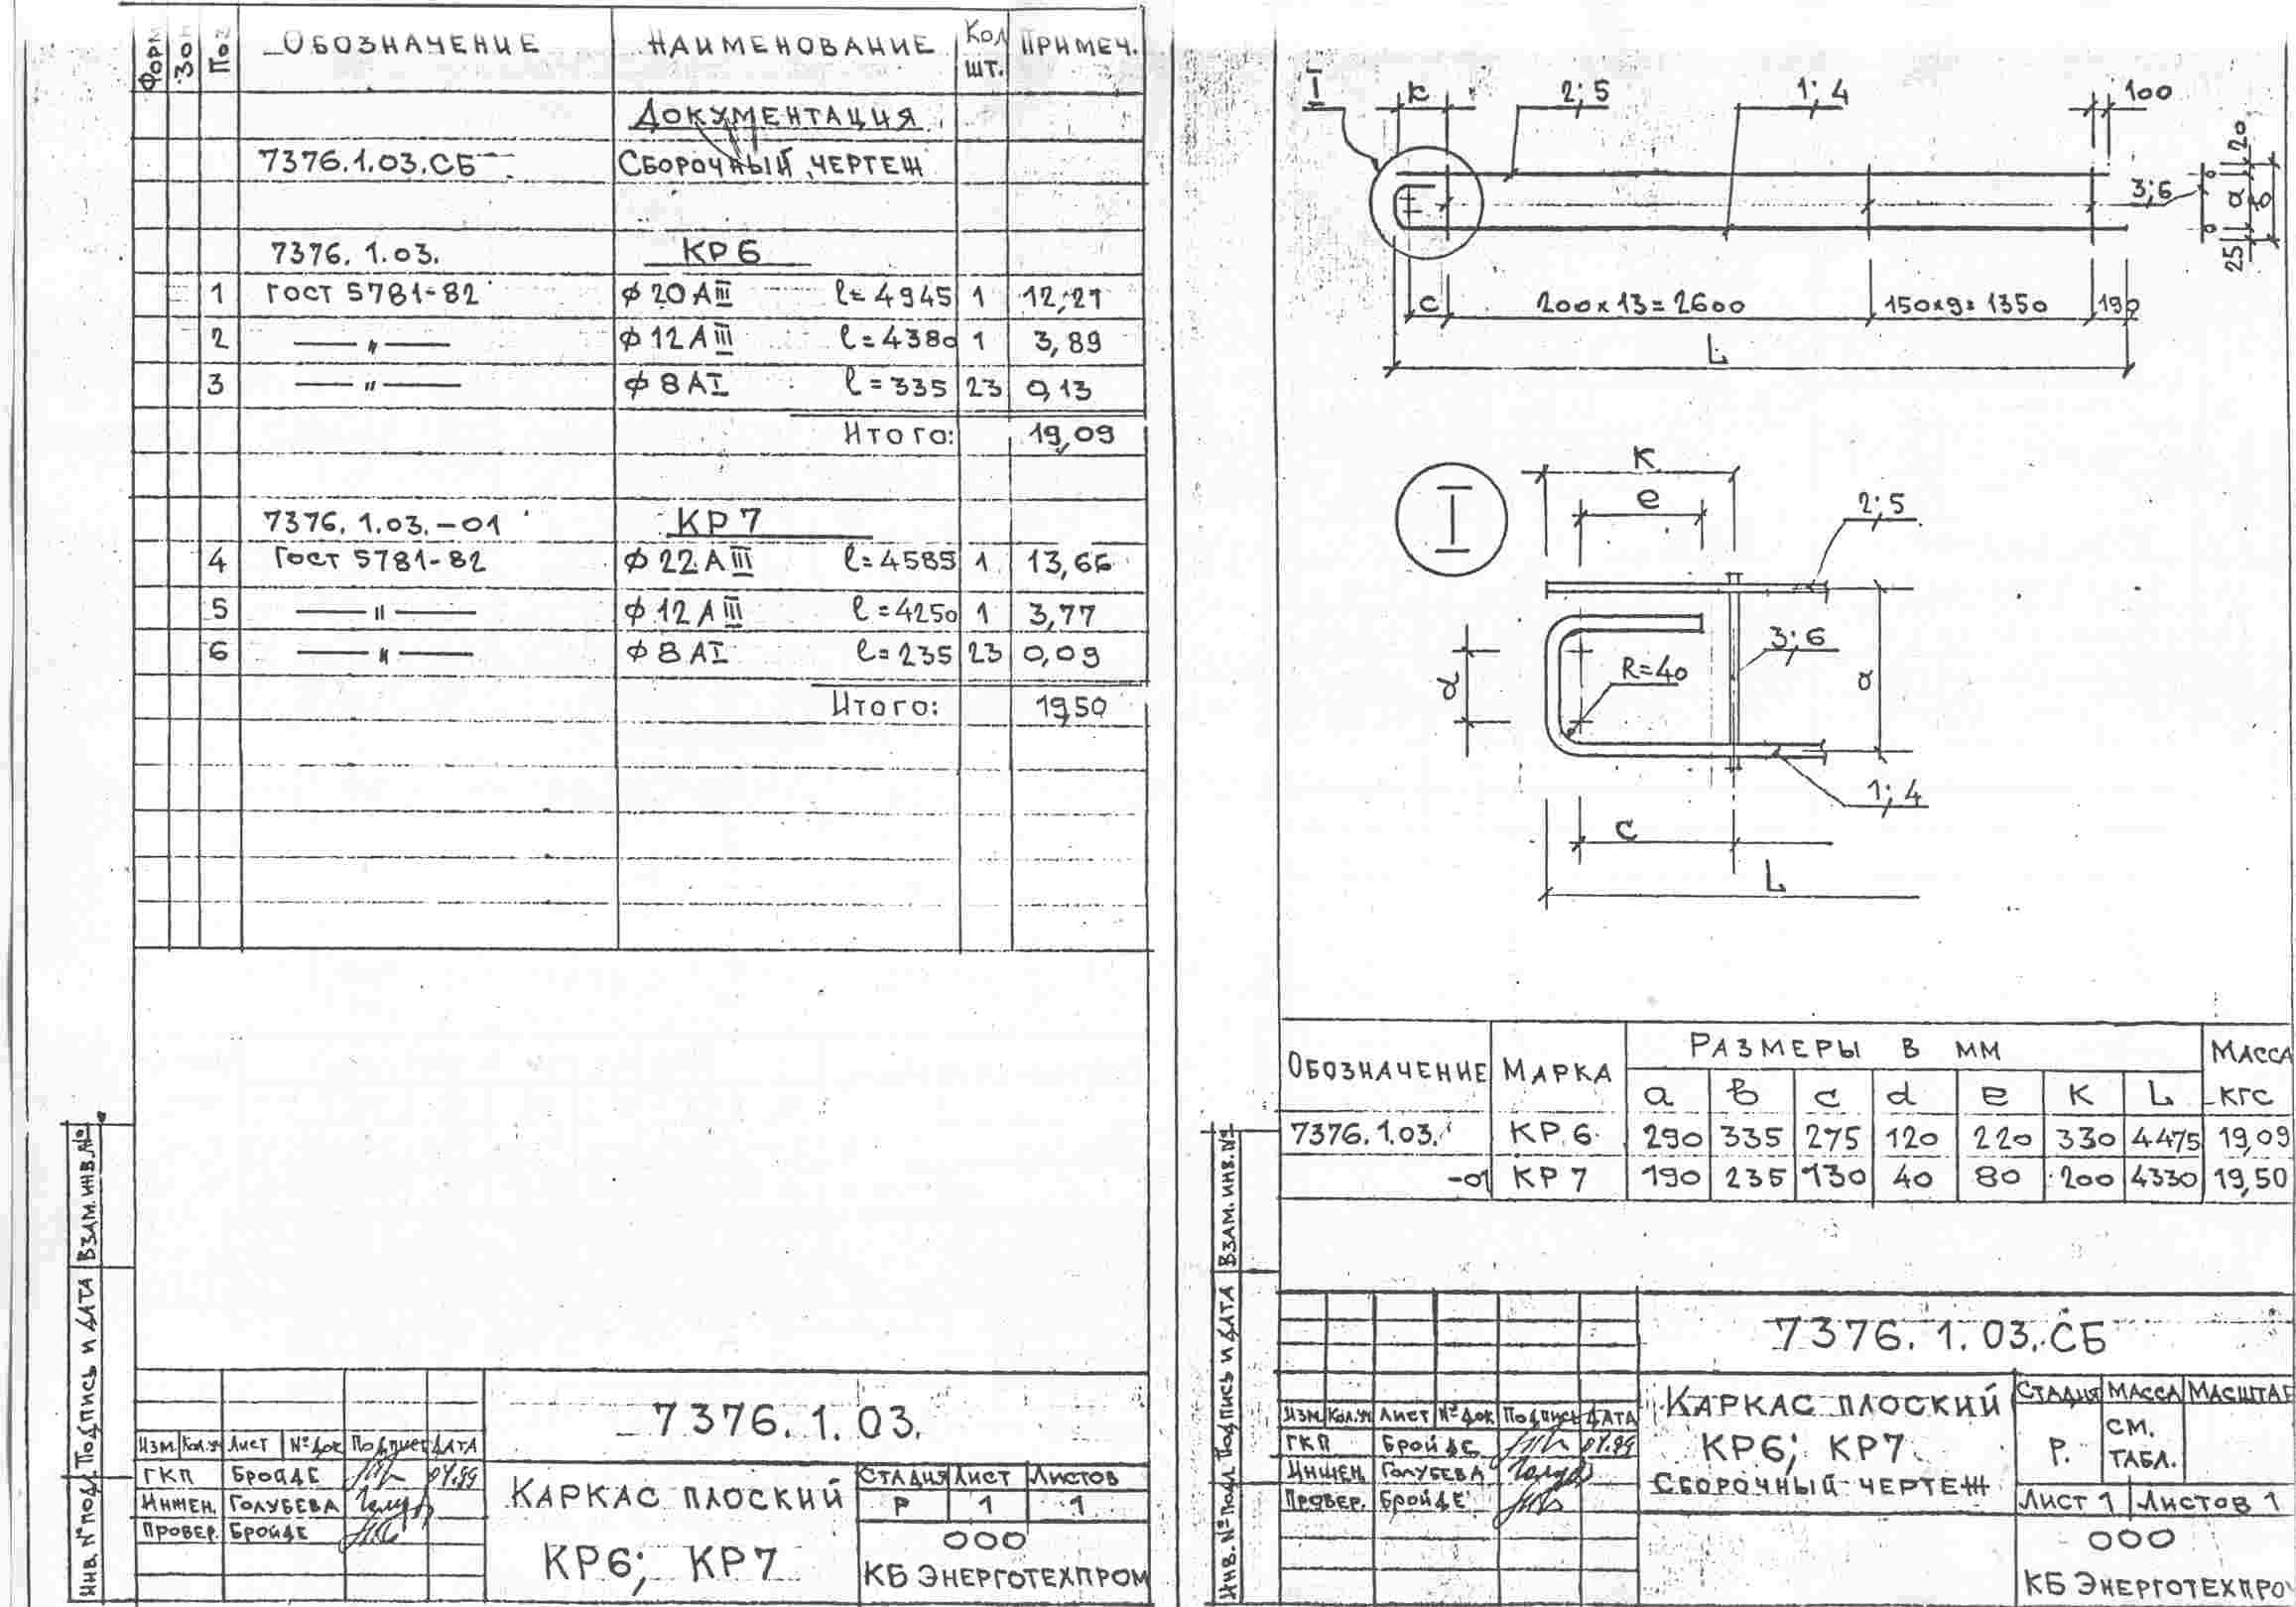 Фор Зо Поз ОБОЗНАЧЕНИЕ НАИМЕНОВАНИЕ Кол шт. ПРИМЕЧ.
ДОКУМЕНТАЦИЯ
7376.1.03.СБ СБОРОЧНЫЙ ЧЕРТЕЖ
7376.1.03. КР6
1 ГОСТ 5781-82 ϕ20АIII l=4945 1 12,21
2 — " — ϕ12АIII l=4380 1 3,89
3 — " — ϕ8АI l=335 23 0,13
Итого: 19,09
7376.1.03.-01 КР7
4 ГОСТ 5781-82 ϕ22АIII l=4585 1 13,66
5 — " — ϕ12АIII l=4250 1 3,77
6 — " — ϕ8АI l=235 23 0,09
Итого: 19,50
ВЗАМ. ИНВ.№
Подпись и ДАТА
Инв. № подл.
7376.1.03.
Изм. Кол.уч Лист №док Подпись ДАТА
ГКП БРОЙДЕ 04.99
Инжен. ГОЛУБЕВА
Провер. БРОЙДЕ
КАРКАС ПЛОСКИЙ
КР6; КР7
СТАДИЯ ЛИСТ ЛИСТОВ
Р 1 1
ООО
КБ ЭНЕРГОТЕХПРОМ
I к 2;5 1;4 100
20
3;6 а в
25
с 200х13=2600 150х9=1350 190
L
I
К
е
2;5
3;6
R=40
d
а
1;4
с
L
ОБОЗНАЧЕНИЕ МАРКА РАЗМЕРЫ В ММ МАССА КГС
а в с d е К L
7376.1.03. КР6 290 335 275 120 220 330 4475 19,09
-01 КР7 190 235 130 40 80 200 4330 19,50
ВЗАМ. ИНВ.№
Подпись и ДАТА
Инв. № подл.
7376.1.03.СБ
Изм. Кол.уч Лист №док Подпись ДАТА
ГКП БРОЙДЕ 04.99
Инжен. ГОЛУБЕВА
Провер. БРОЙДЕ
КАРКАС ПЛОСКИЙ
КР6; КР7
СБОРОЧНЫЙ ЧЕРТЕЖ
СТАДИЯ МАССА МАСШТАБ
Р. СМ. ТАБЛ.
Лист 1 Листов 1
ООО
КБ ЭНЕРГОТЕХПРО